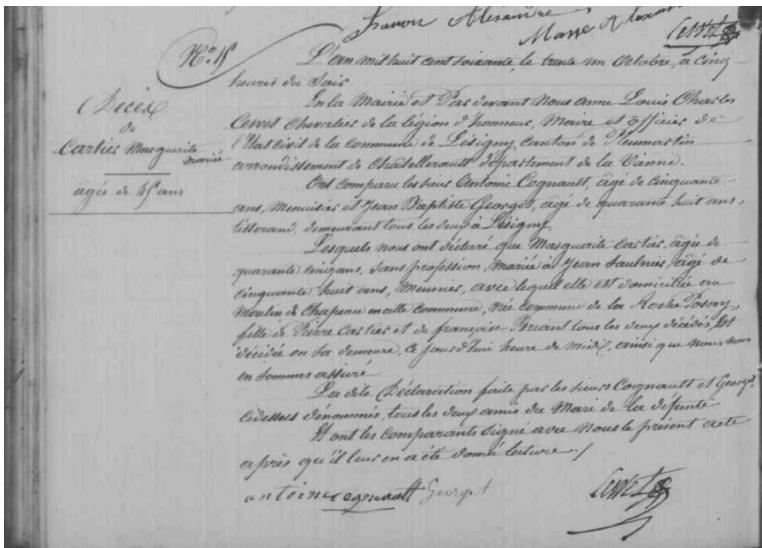 Alexandre
Masse
Cesvet
No. 15
L'an mil huit cent soixante, le trente un Octobre, à cinq
heures du Soir
En la Mairie et Par devant Nous anne Louis Charles
Cesvet Chevalier de la légion d'honneur, Maire et officier de
l'État civil de la Commune de Lésigny, canton de Pleumartin
arrondissement de Chatellerault département de la Vienne.
Ont comparu les sieurs Antoine Cognault, âgé de cinquante
ans, Menuisier et Jean Baptiste Georget, âgé de quarante huit ans,
tisserand, demeurant tous les deux à Lésigny
Lesquels nous ont déclaré que Marguerite Cartier, âgée de
quarante cinq ans, sans profession, mariée à Jean Saulnier, âgé de
cinquante huit ans, Meunier, avec lequel elle est domiciliée au
Moulin de Chapeau en cette commune, née commune de la Roche Posay,
fille de Pierre Cartier et de françoise Bruant tous les deux décédés, Est
décédée en sa demeure, ce jourd'hui heure de midi, ainsi que nous nous
en sommes assuré
La dite Déclaration faite par les sieurs Cognault et Georget
Cidessus dénommés, tous les deux amis du Mari de la défunte
Et ont les comparants signé avec Nous le présent acte
après qu'il leur en a été donné lecture ./
antoine cognault Georget
Cesvet
Décès
de
Cartier Marguerite
mariée
âgée de 45 ans